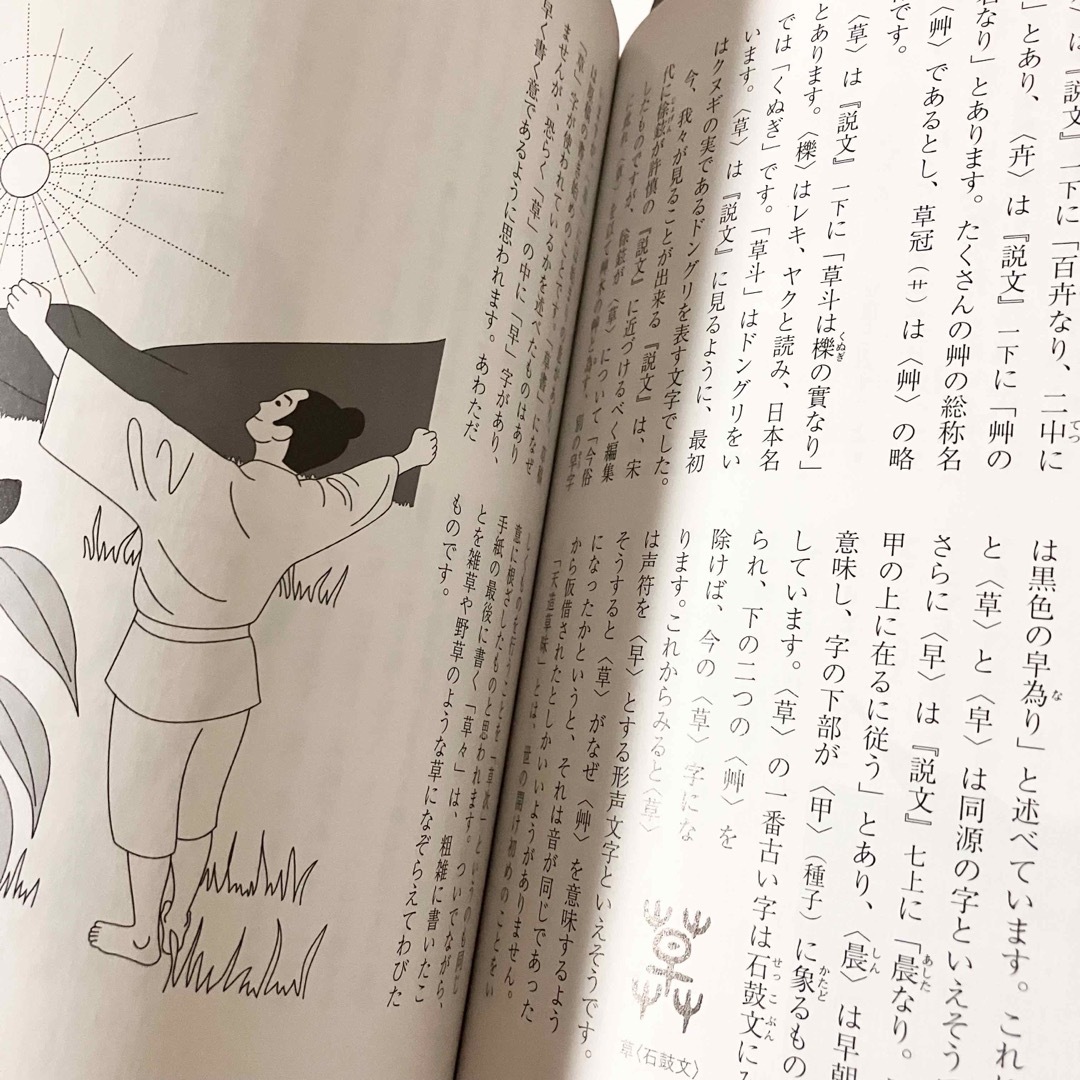 は『説文』一下に「百卉なり、二屮に
」とあり、〈卉〉は『説文』一下に「艸の
名なり」とあります。たくさんの艸の総称名
〈艸〉であるとし、草冠（艹）は〈艸〉の略
です。
〈草〉は『説文』一下に「草斗は櫟の實なり」
とあります。〈櫟〉はレキ、ヤクと読み、日本名
では「くぬぎ」です。「草斗」はドングリをい
います。〈草〉は『説文』に見るように、最初
はクヌギの実であるドングリを表す文字でした。
今、我々が見ることが出来る『説文』は、宋
代に徐鉉が許慎の『説文』に近づけるべく編集
したものですが、徐鉉が〈草〉について「今俗
〈草〉を以て艸木の艸と為す。別の皁字
は黒色の皁為り」と述べています。これ
と〈草〉と〈皁〉は同源の字といえそう
さらに〈早〉は『説文』七上に「晨なり。
甲の上に在るに従う」とあり、〈晨〉は早朝
意味し、字の下部が〈甲〉（種子）に象るもの
しています。〈草〉の一番古い字は石鼓文に
られ、下の二つの〈艸〉を
除けば、今の〈草〉字にな
ります。これからみると〈草〉
は声符を〈早〉とする形声文字といえそうです。
そうすると〈草〉がなぜ〈艸〉を意味するよう
になったかというと、それは音が同じであった
から仮借されたとしかいいようがありません。
「天造草昧」とは、世の開け初めのことをい
草〈石鼓文〉
ませんが、恐らく「草」の中に「早」字があり、
早く書く意であるように思われます。あわただ
しくものを行うことを「草次」というのも同じ
意に根ざしたものと思われます。ついでながら、
手紙の最後に書く「草々」は、粗雑に書いたこ
とを雑草や野草のような草になぞらえてわびた
ものです。